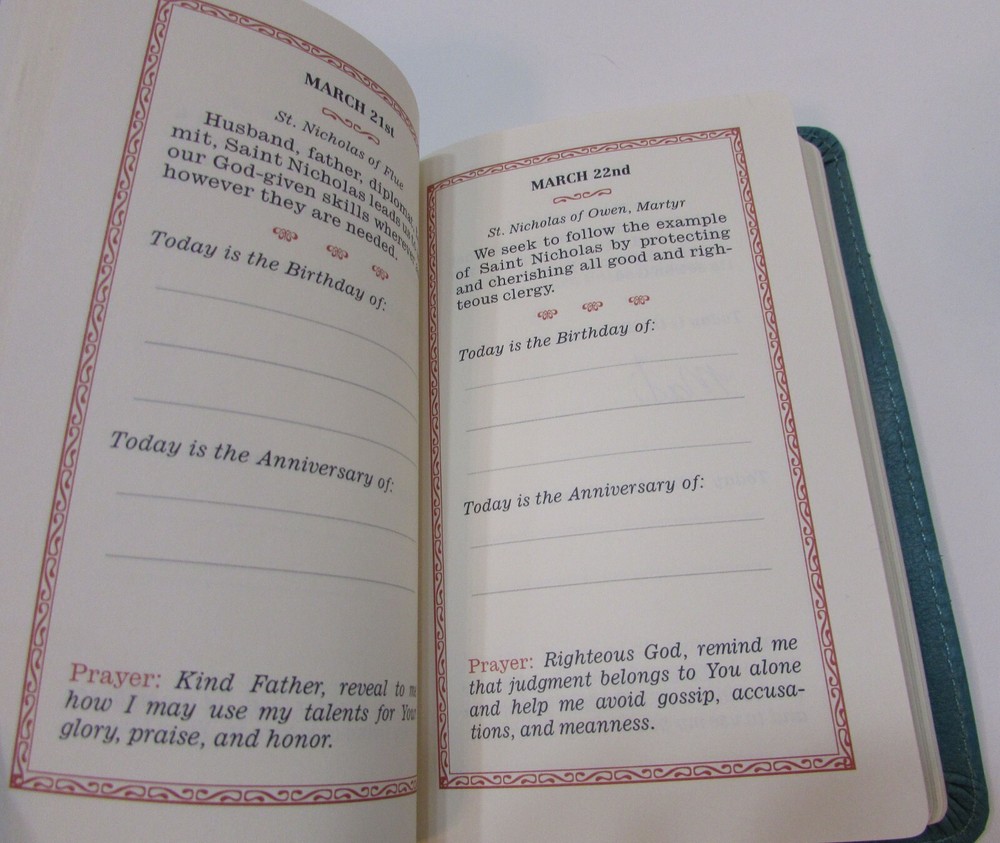 MARCH 21st
St. Nicholas of Flue
Husband, father, diplomat,
mit, Saint Nicholas leads us to
our God-given skills wherever
however they are needed.
Today is the Birthday of:
Today is the Anniversary of:
Prayer: Kind Father, reveal to me
how I may use my talents for Your
glory, praise, and honor.
MARCH 22nd
St. Nicholas of Owen, Martyr
We seek to follow the example
of Saint Nicholas by protecting
and cherishing all good and righ-
teous clergy.
Today is the Birthday of:
Today is the Anniversary of:
Prayer: Righteous God, remind me
that judgment belongs to You alone
and help me avoid gossip, accusa-
tions, and meanness.